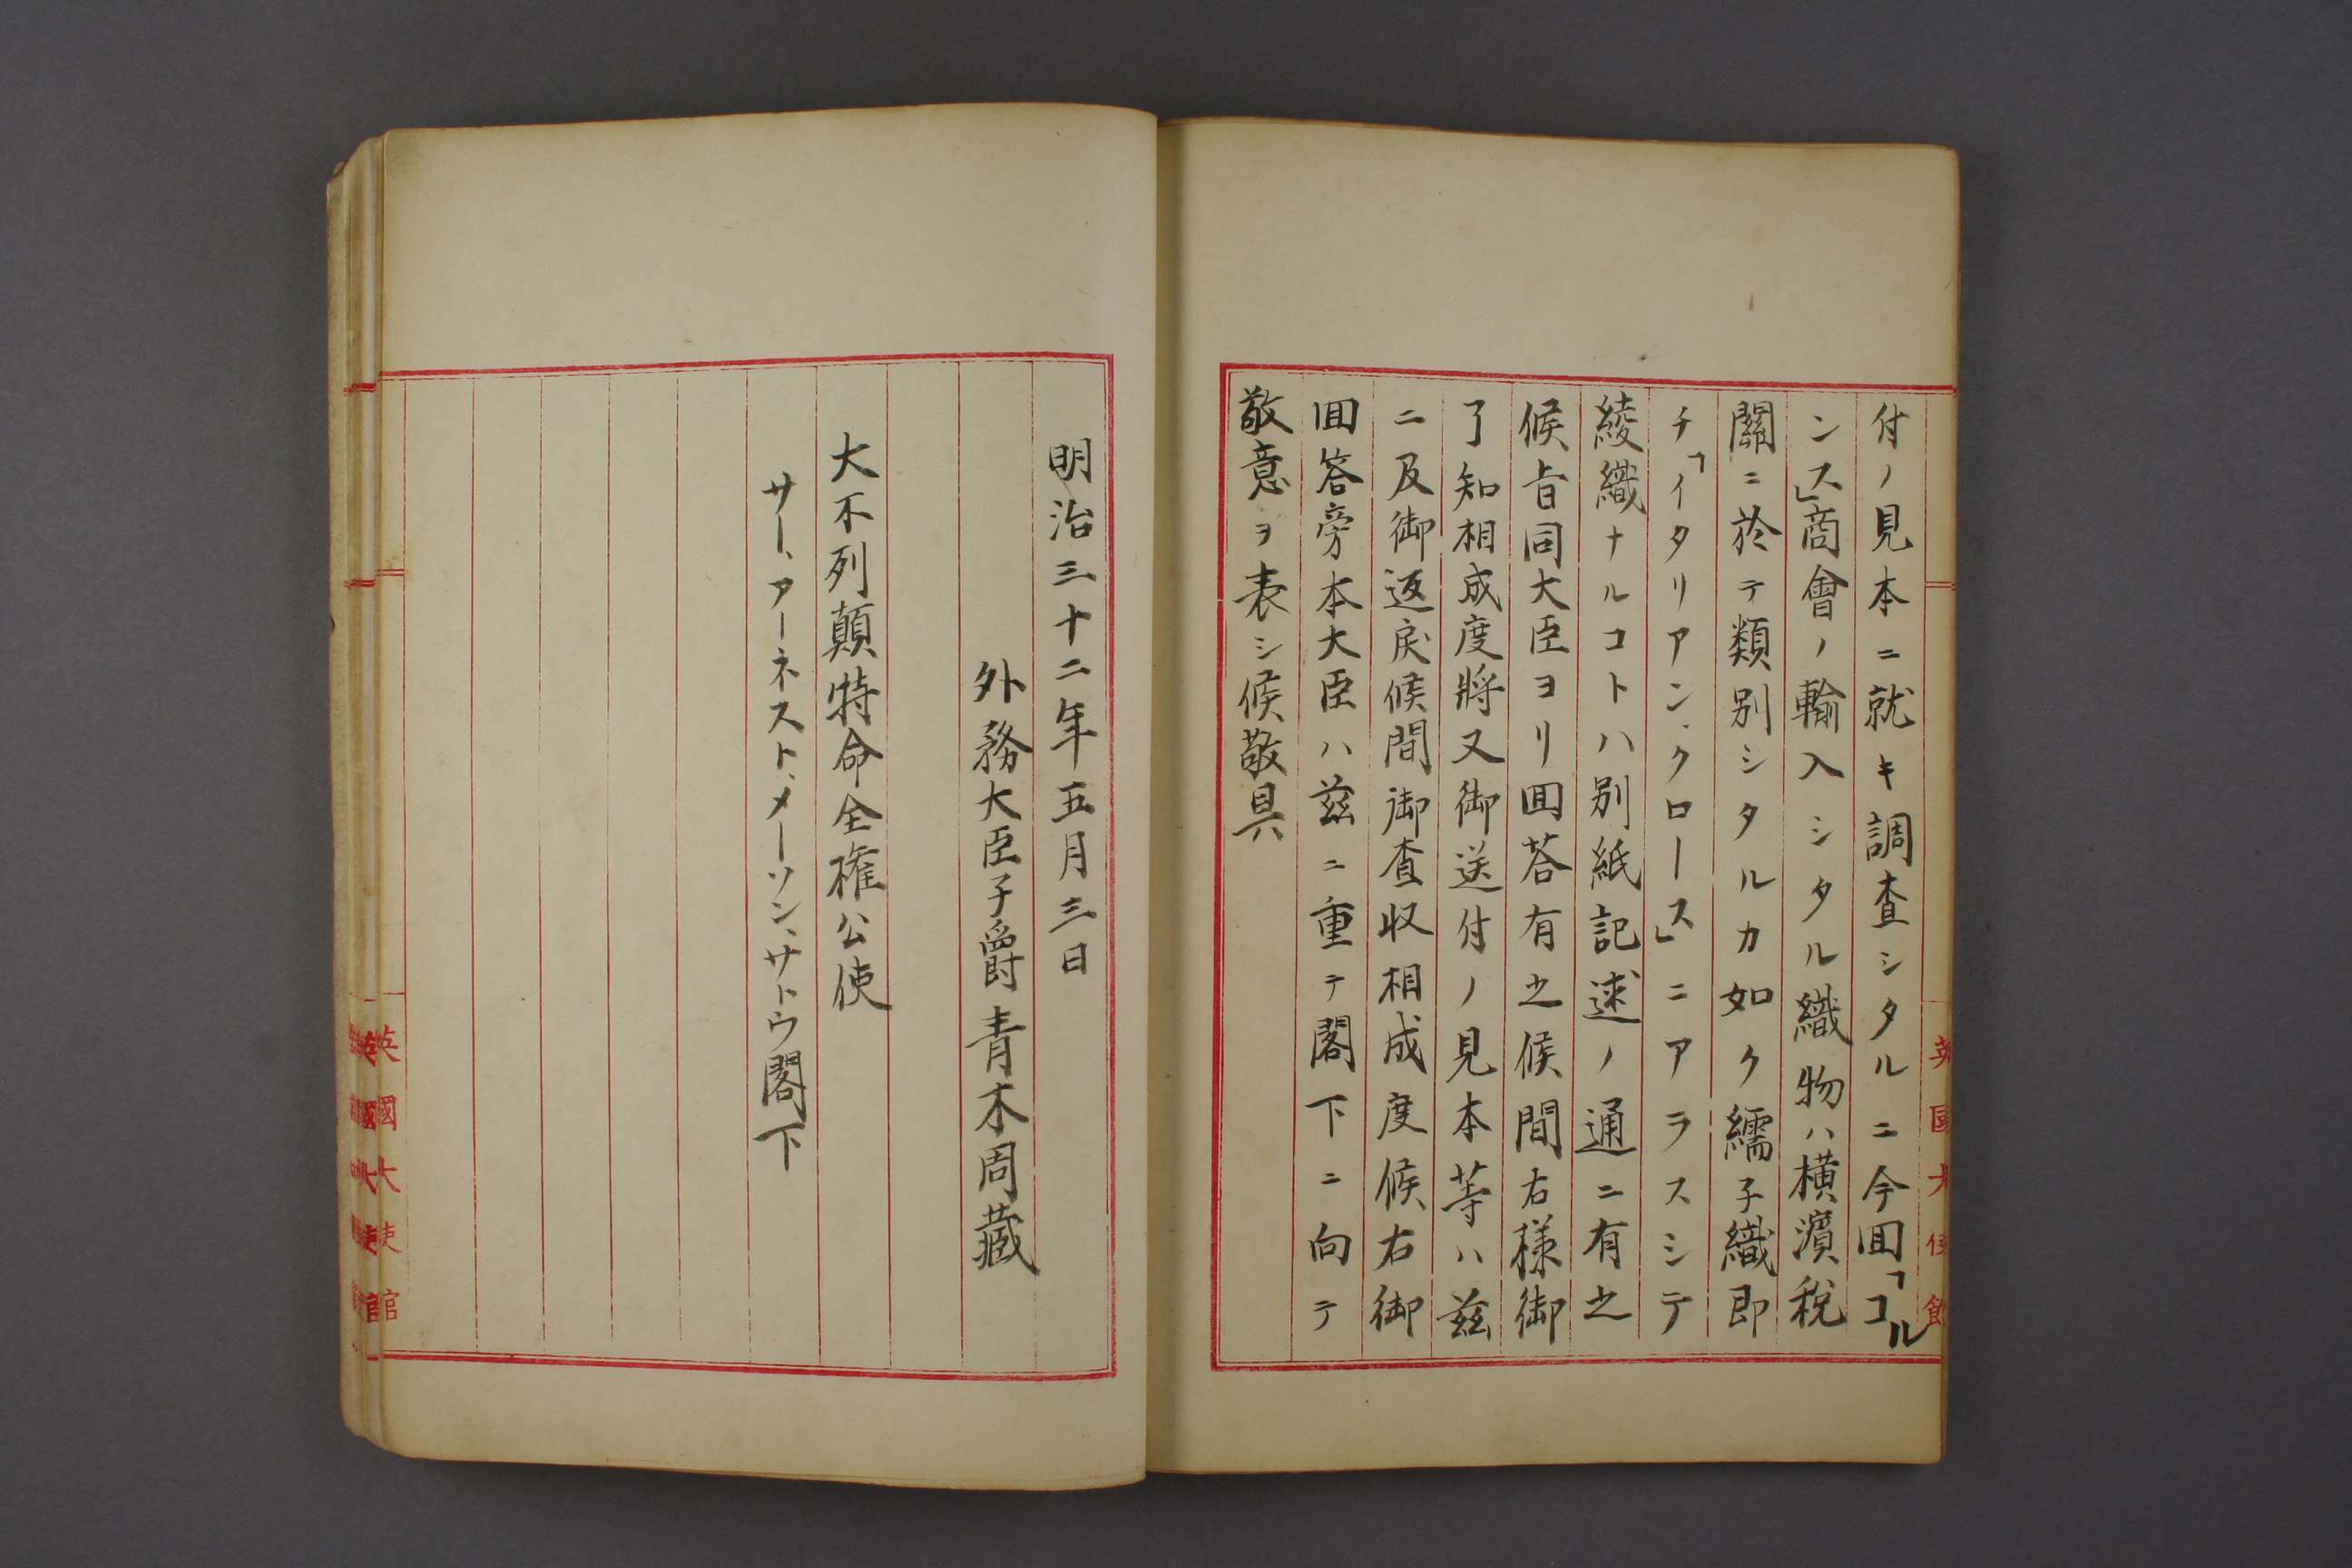 付ノ見本ニ就キ調査シタルニ今回「コル
ンス」商會ノ輸入シタル織物ハ横濱税
關ニ於テ類別シタルカ如ク繻子織即
チ「イタリアン、クロース」ニアラスシテ
綾織ナルコトハ別紙記述ノ通ニ有之
候旨同大臣ヨリ回答有之候間右様御
了知相成度將又御送付ノ見本等ハ茲
ニ及御返戻候間御査収相成度候右御
回答旁本大臣ハ茲ニ重テ閣下ニ向テ
敬意ヲ表シ候敬具
明治三十二年五月三日
外務大臣子爵青木周藏
大不列顛特命全権公使
サー、アーネスト、メーソン、サトウ閣下
英國大使館
英國大使館